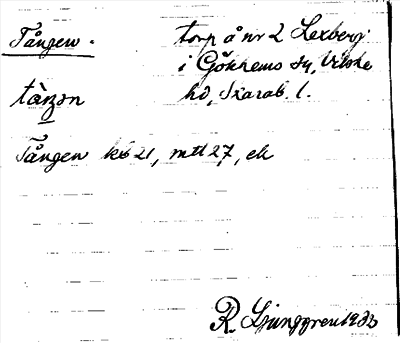 Tången. torp å nr 2 Lexberg
i Gökhems sn, Vilske
tàŋən hd, Skarab. l.
Tången kb 21, mtl 27, ek
R. Ljunggren 1933